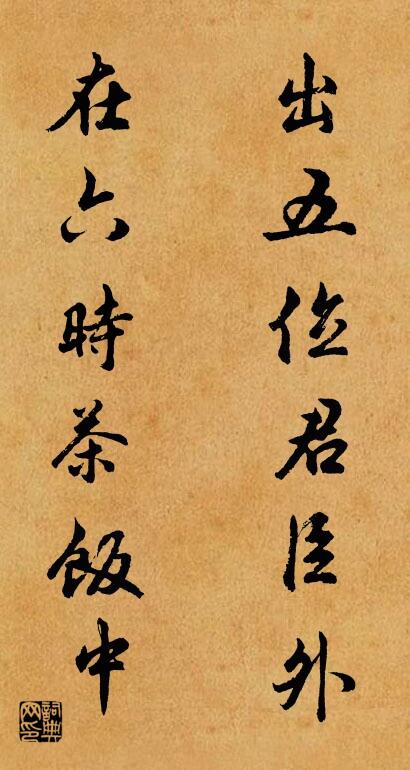 出五位君臣外
在六時茶飯中
詞典网印